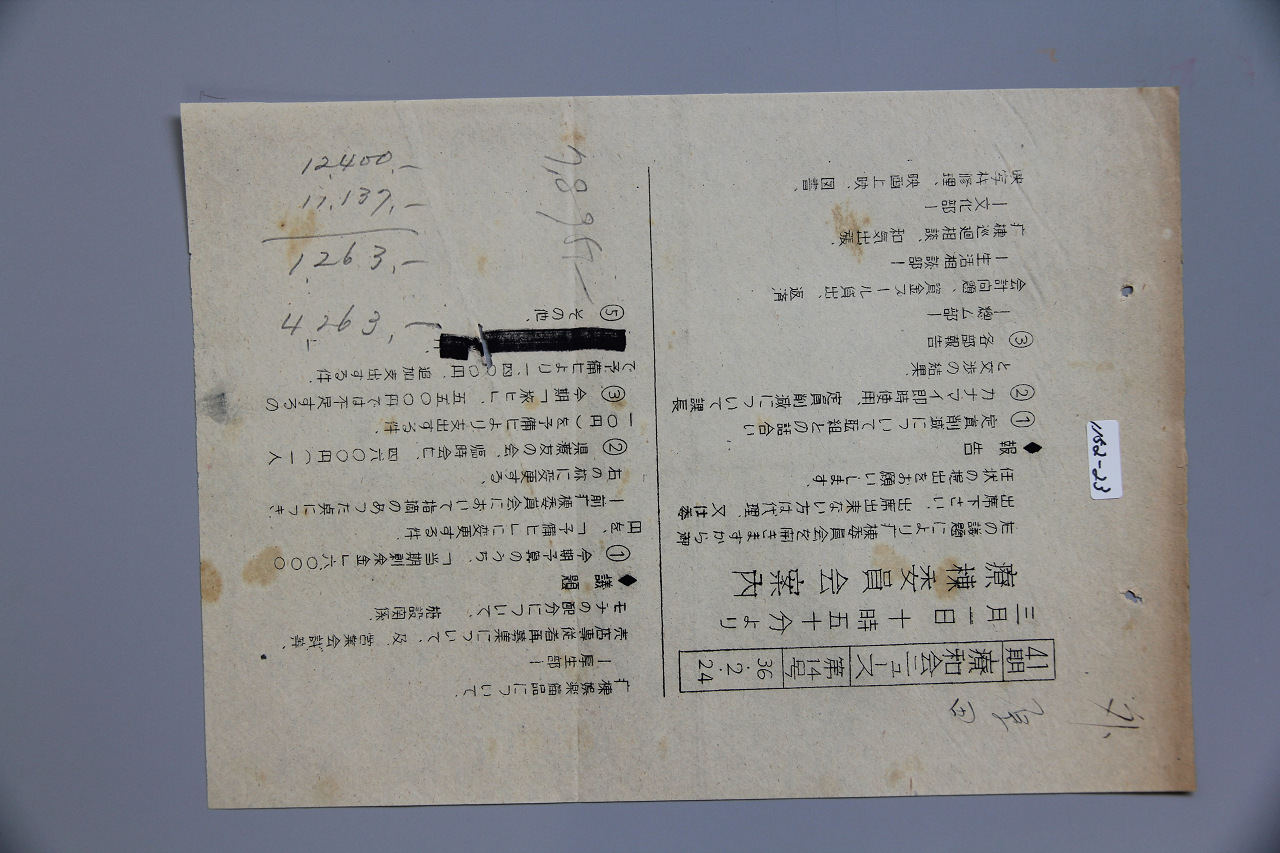 41期 療和会ニュース 第14号 36・2・24
三月一日 十時五十分より
療棟委員会案内
左の議題により疒棟委員会を開きますから御
出席下さい、出席出来ない方は代理、又は委
任状の提出をお願いします。
◆報告
① 定員削減について 組との話合い
② カナマイ即時使用、定員削減について課長
と交渉の結果
③ 各部報告
ー総ム部ー
会計問題、資金スール貸出、返済
ー生活相談部ー
疒棟巡廻相談、和気出張
ー文化部ー
映写机修理、映画上映、図書、
疒棟娯楽備品について
ー厚生部ー
売店専従者再募集について、及、営業会計等、
モチの配分について、施設関係
◆議題
① 今期予算のうち「当期剰余金」六〇〇〇
円を「予備ヒ」に変更する件
ー前疒棟委員会において指摘のあった点につき、
右の称に変更する、
② 県療友の会、臨時会ヒ、四六〇〇円(一人
一〇円)を予備ヒより支出する件、
③ 今期「旅ヒ」五五〇〇円では不足するの
で予備ヒより一四〇〇〇円、追加支出する件、
⑤ その他、
12,400,−
11,137,−
1,263,−
4,263,−
1152-23